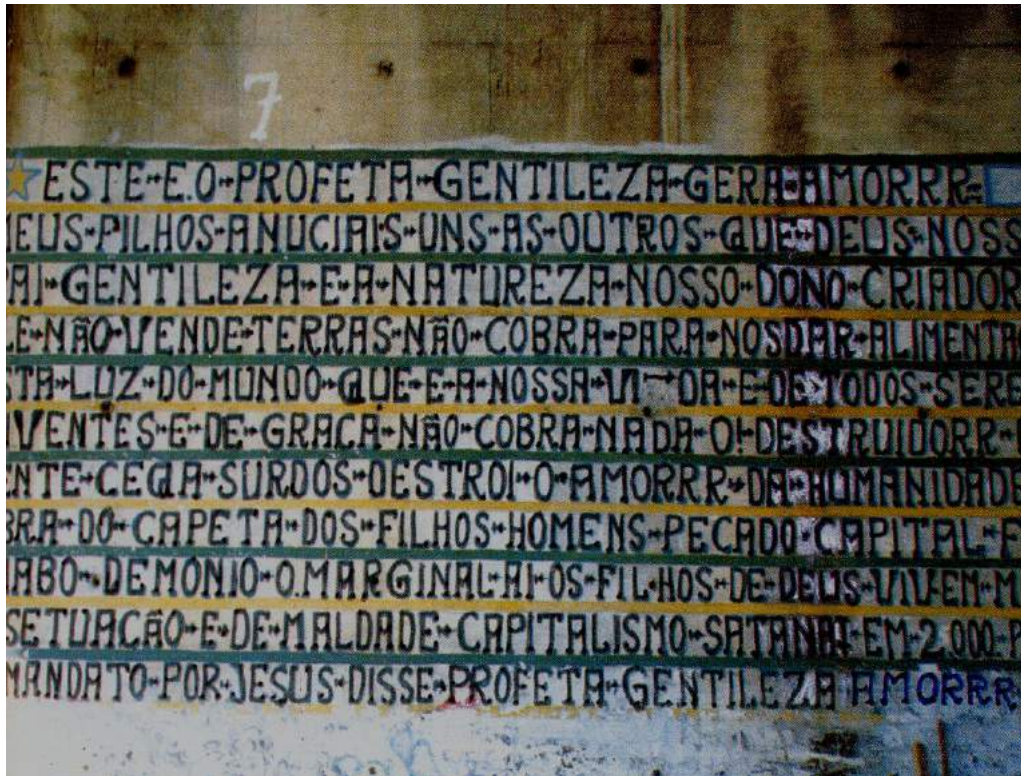 7
ESTE E.O PROFETA GENTILEZA GERA AMORRR
EUS PILHOS ANUCIAIS UNS AS OUTROS QUE DEUS NOSS
AI GENTILEZA E A NATUREZA NOSSO DONO CRIADOR
LE NÃO VENDE TERRAS NÃO COBRA PARA NOSDAR ALIMENTA
STA LUZ DO MUNDO QUE E A NOSSA VI DA E DE TODOS SERE
VENTES E DE GRACA NÃO COBRA NADA O! DESTRUIDORR
ENTE CEQA SURDOS DESTROI O AMORRR DA HUMANIDADE
BRA DO CAPETA DOS FILHOS HOMENS PECADO CAPITAL E
ABO DEMONIO O.MARGINAL AI OS FIL HOS DE DEUS VIVEM M
SETUACÃO E DE MALDADE CAPITALISMO SATANA! EM 2.000
MANDATO POR JESUS DISSE PROFETA GENTILEZA AMORRR